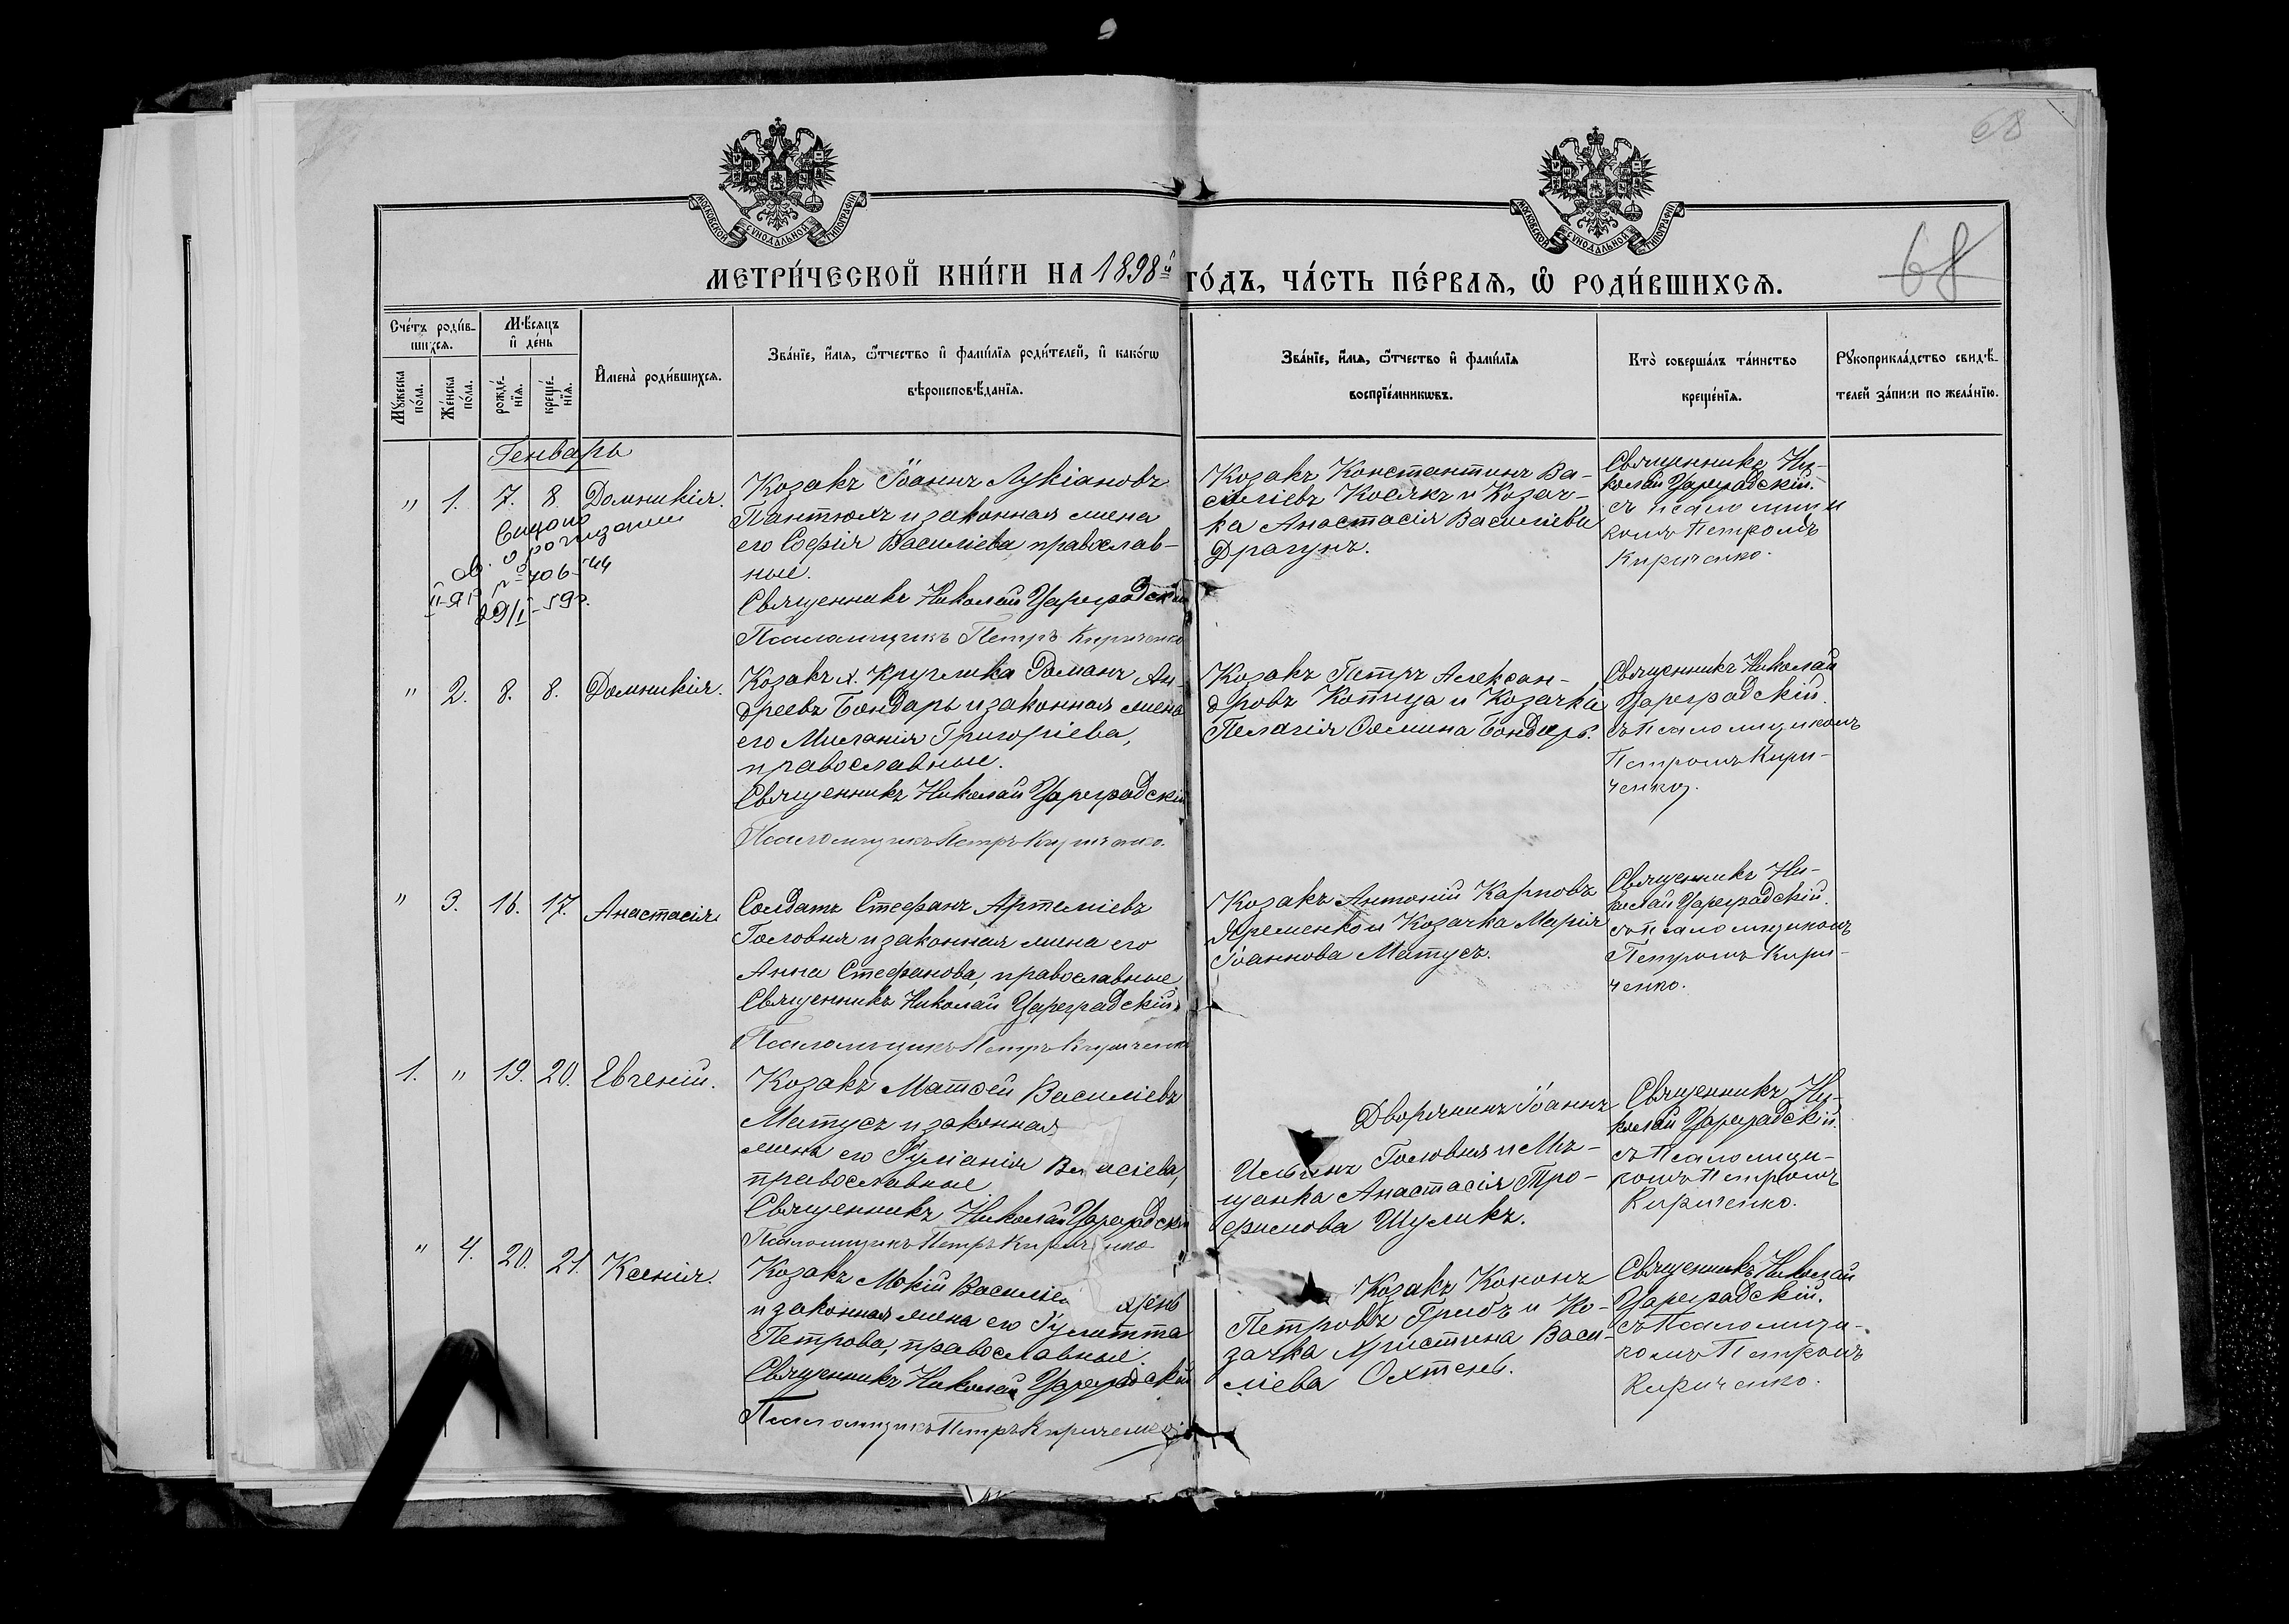 68
МОСКОВСКОЙ СѴНОДАЛЬНОЙ ТИПОГРАФІИ
МОСКОВСКОЙ СѴНОДАЛЬНОЙ ТИПОГРАФІИ
МЕТРИ́ЧЕСКОЙ КНИ́ГИ НА 1898й ГО́ДЪ, ЧА́СТЬ ПЕ́РВАѦ, Ѡ҆ РОДИ́ВШИХСѦ.
68
Сче́тъ роди́в-
шихся.
Мѣ́сяцъ
и҆ де́нь
Мꙋ́жеска по́ла.
Же́нска по́ла.
рожде́-нїя.
креще́-нїя.
И҆мена̀ роди́вшихся.
Зва́нїе, и҆́мя, ѻ҆́тчество и҆ фами́лїя роди́телей, и҆ како́гѡ
вѣроисповѣ́данїя.
Зва́нїе, и҆́мя, ѻ҆́тчество и҆ фами́лїя
воспрїе́мникѡвъ.
Кто̀ соверша́лъ та́инство
креще́нїя.
Рꙋкоприкла́дство свидѣ́-
телей за́писи по жела́нїю.
Генварь
" 1. 7. 8. Домникія.
Козакъ Іоаннъ Лукіановъ
Пантюхъ и законная жена
его Софія Василіева православ-
ные.
Священникъ Николай Цареградскій
Псаломщикъ Петръ Кириченко
Козакъ Константинъ Ва-
силіевъ Косякъ и Козач-
ка Анастасія Василіева
Драгунъ.
Священникъ Ни-
колай Цареградскій.
съ псаломщи
комъ Петромъ
Кириченко.
29/I-59г.
" 2. 8. 8. Домникія.
Козакъ х. Круглика Романъ Ан-
дреевъ Бондарь и законная жена
его Миланія Григоріева,
православные.
Священникъ Николай Цареградскій
Псаломщикъ Петръ Кириченко.
Козакъ Петръ Алексан-
дровъ Копица и Козачка
Пелагія Фомина Бондарь.
Священникъ Николай
Цареградскій.
съ Псаломщикомъ
Петромъ Кири-
ченко.
" 3. 16. 17. Анастасія
Солдатъ Стефанъ Артеміевъ
Головня и законная жена его
Анна Стефанова, православные
Священникъ Николай Цареградскій
Псаломщикъ Петръ Кириченко
Козакъ Антоній Карповъ
Яременко и Козачка Марія
Іоаннова Матусъ.
Священникъ Ни-
колай Цареградскій.
съ Псаломщикомъ
Петромъ Кири-
ченко.
1. " 19. 20. Евгеній.
Козакъ Матѳей Василіевъ
Матусъ и законная
жена его Іуліанія
православные
Священникъ Николай Цареградскій
Псаломщикъ Петръ Кириченко
Дворянинъ Іоаннъ
Ильинъ Головня и Мѣ-
щанка Анастасія Тро-
фимова Шуликъ.
Священникъ Ни-
колай Цареградскій.
съ Псаломщи-
комъ Петромъ
Кириченко.
" 4. 20. 21. Ксенія.
Козакъ Мокій
и законная жена его Іулитта
Петрова, православные
Священникъ Николай Цареградскій
Псаломщикъ Петръ Кириченко
Козакъ Кононъ
Петровъ Грибъ и Ко-
зачка Христина Васи-
ліева Охтень.
Священникъ Николай
Цареградскій.
съ Псаломщи-
комъ Петромъ
Кириченко.